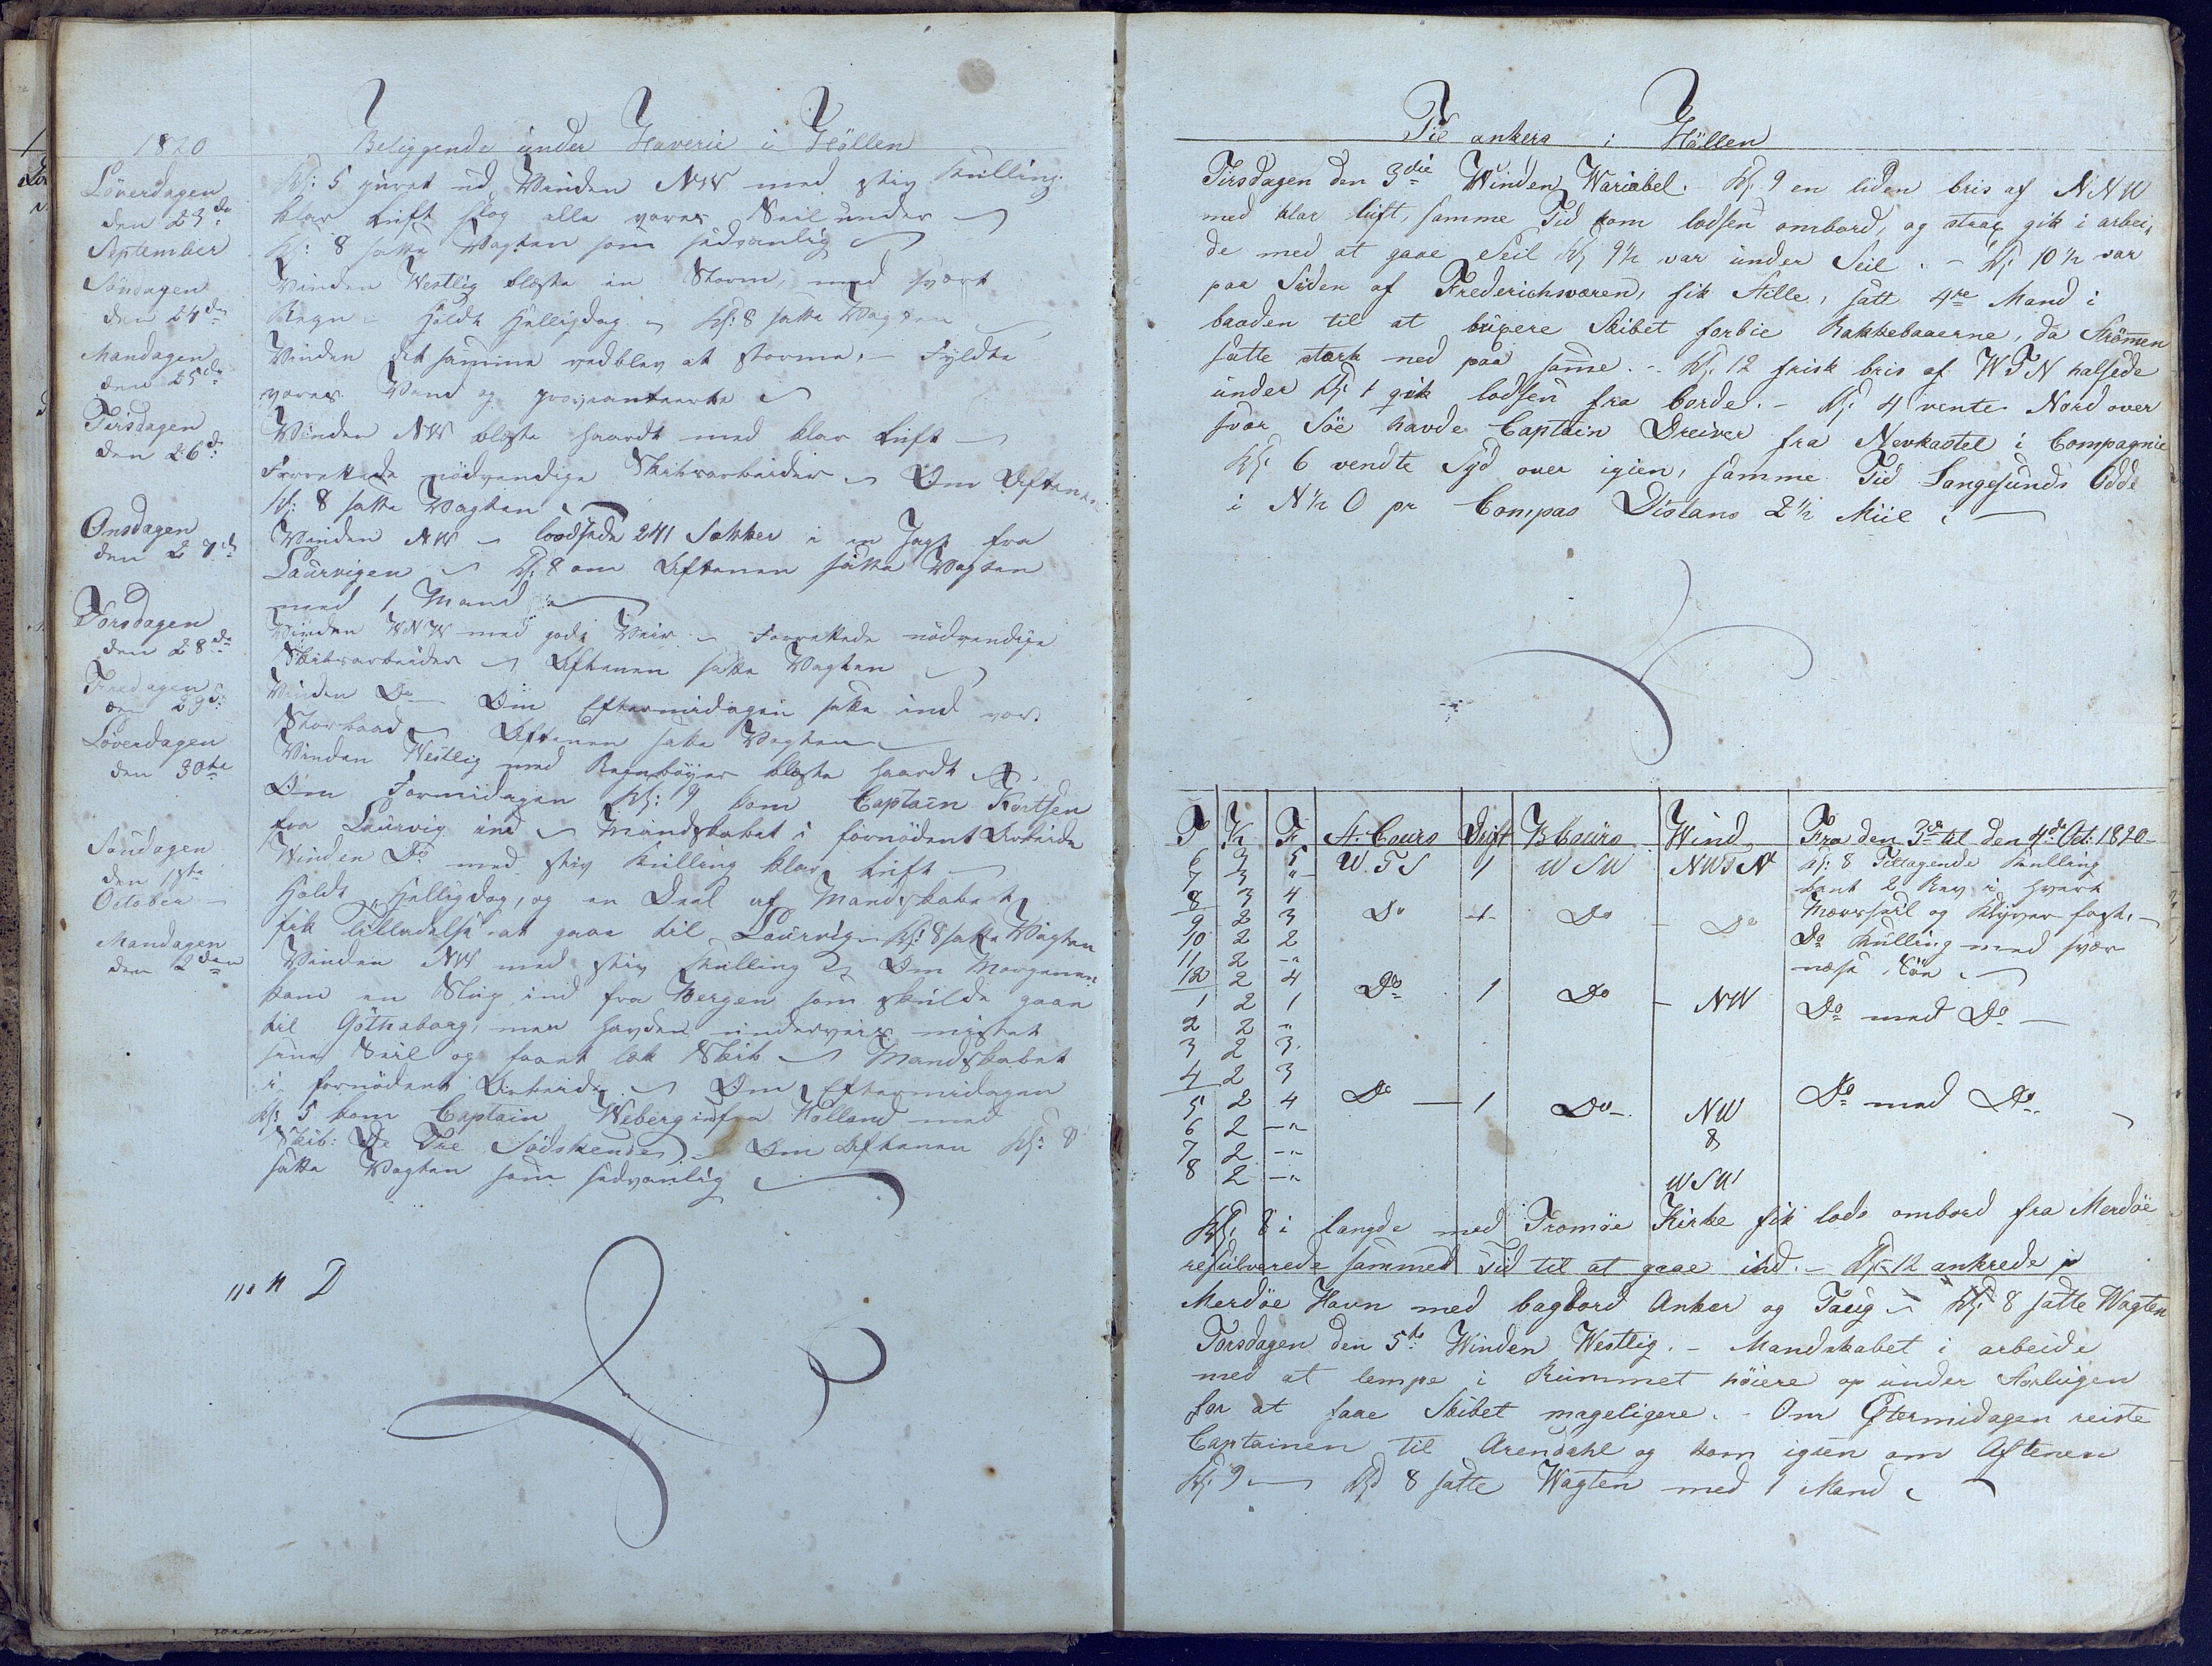 1820
Beliggende under Haverie i Höllen
Löverdagen
den 23de
September
Kl: 5 purret ud Vinden NW med stiv Kulling
klar Luft slog alle vores Seil under
Kl: 8 satte Vagten som sædvanlig
Söndagen
den 24de
Vinden Westlig blæste en Storm, med svært
Regn – holdt Helligdag – Kl: 8 satte Vagten
Mandagen
den 25de
Vinden det samme vedblev at storme, – Fyldte
vores Vand og provianterte
Tirsdagen
den 26de
Vinden NW blæste haardt med klar Luft
Forrettede nödvendige Skibsarbeider – Om Aftenen
Kl: 8 satte Vagten
Onsdagen
den 27de
Vinden NW – lodsede 241 Sækker i en Jagt fra
Laurvigen – Kl: 8 om Aftenen satte Vagten
med 1 Mand
Torsdagen
den 28de
Vinden WNW med godt Veir – Forrettede nödvendige
Skibsarbeider – Aftenen satte Vagten
Fredagen
den 29de
Vinden Do – Om Eftermidagen satte ind vor
Storbaad – Aftenen satte Vagten
Löverdagen
den 30te
Vinden Westlig med Regnböyer blæste haardt
Om Formidagen Kl: 9 kom Captain
fra Laurvig ind – Mandskabet i fornödent Arbeide
Söndagen
den 1ste
October
Vinden Do med stiv Kulling klar Luft
Holdt Helligdag, og en Deel af Mandskabet
fik Tilladelse at gaae til Laurvig – Kl: 8 satte Vagten
Mandagen
den 2den
Vinden NW med stiv Kulling – Om Morgenen
kom en Slup ind fra Bergen som skulde gaae
til Göthaborg, men havde underveis mistet
sine Seil og faaet læk Skib – Mandskabet
i fornödent Arbeide – Om Eftermidagen
Kl: 5 kom Captain Weberg ind fra Holland med
Skib: De Tre Södskende – Om Aftenen Kl: 8
satte Vagten som sædvanlig
Til ankers i Höllen
Tirsdagen den 3die Winden Wariabel. Kl: 9 en liden bris af NNW
med klar luft, samme Tid kom lodsen ombord, og strax gik i arbei-
de med at gaae Seil Kl: 9½ var under Seil. – Kl: 10½ var
paa Siden af Frederichsværen, fik Stille, satt 4re Mand i
baaden til at buxere Skibet forbie Rakkebaaerne, da Strömen
satte stærk ned paa same. – Kl: 12 frisk bris af WTN halsede
under Kl: 1 gik lodsen fra borde. – Kl: 4 vente Nord over
svær Söe havde Captain Dreiver fra Nevkastel i Compagnie
Kl: 6 vendte Syd over igien, samme Tid Langesunds Odde
i N½O pr Compas Distans 2½ Miil
T K F St. Cours Drift B Cours Wind Fra den 3de til den 4de Oct: 1820
6 3 5 W.T.S 1 WSW NWTN Kl: 8 Tiltagende Kulling
7 3 " bant 2 Rev i hvert
8 3 4 Mersseil og Klyver fast,
9 2 3 Do 1 Do Do
10 2 2 Do Kulling med svær
11 2 "
12 2 4
1 2 1 Do 1 Do NW Do med Do
2 2 "
3 2 3
4 2 3
5 2 4 Do 1 Do NW Do med Do
6 2 " &
7 2 "
8 2 " WSW
Kl: 8 i langde med Tromöe Kirke fik lods ombord fra Merdöe
resulverede sammed Tid til at gaae ind. – Kl: 12 ankrede i
Merdöe Havn med bagbord Anker og Taug – Kl: 8 satte Wagten
Torsdagen den 5te Winden Westlig. – Mandskabet i arbeide
med at lempe i Rummet höiere op under Storlugen
for at faae Skibet mageligere. – Om Eftermidagen reiste
Captainen til Arendahl og kom igien om Aftenen
Kl: 9 – Kl: 8 satte Wagten med 1 Mand